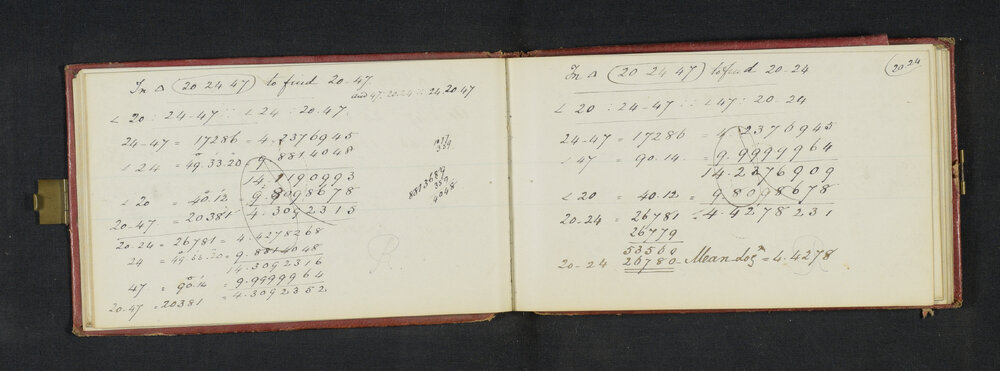 In △ (20 24 47) to find 20-47.
and 47: 20.24 :: 24 20.47
∠ 20 : 24-47 :: ∠ 24 : 20.47
24-47 = 17286 = 4.2376945
∠ 24 = 49.33.20 = 9.8814048
14.1190993
∠ 20 = 40.12 = 9.8098678
20-47 = 20381 = 4.3092315
20-24 = 26781 = 4.4278268
= 9.8814048
14.3092316
47 = 90.14 = 9.9999964
20-47 = 20381 = 4.3092352
8813689
359
4048
R.
20-24
In △ (20 24 47) to find 20-24
∠ 20 : 24-47 :: ∠ 47 : 20-24
24-47 = 17286 = 4.2376945
∠ 47 = 90.14 = 9.9999964
14.2376909
∠ 20 = 40.12 = 9.8098678
20-24 = 26781 = 4.4278231
26779
53560
20-24 26780 Mean Log^m = 4.4278